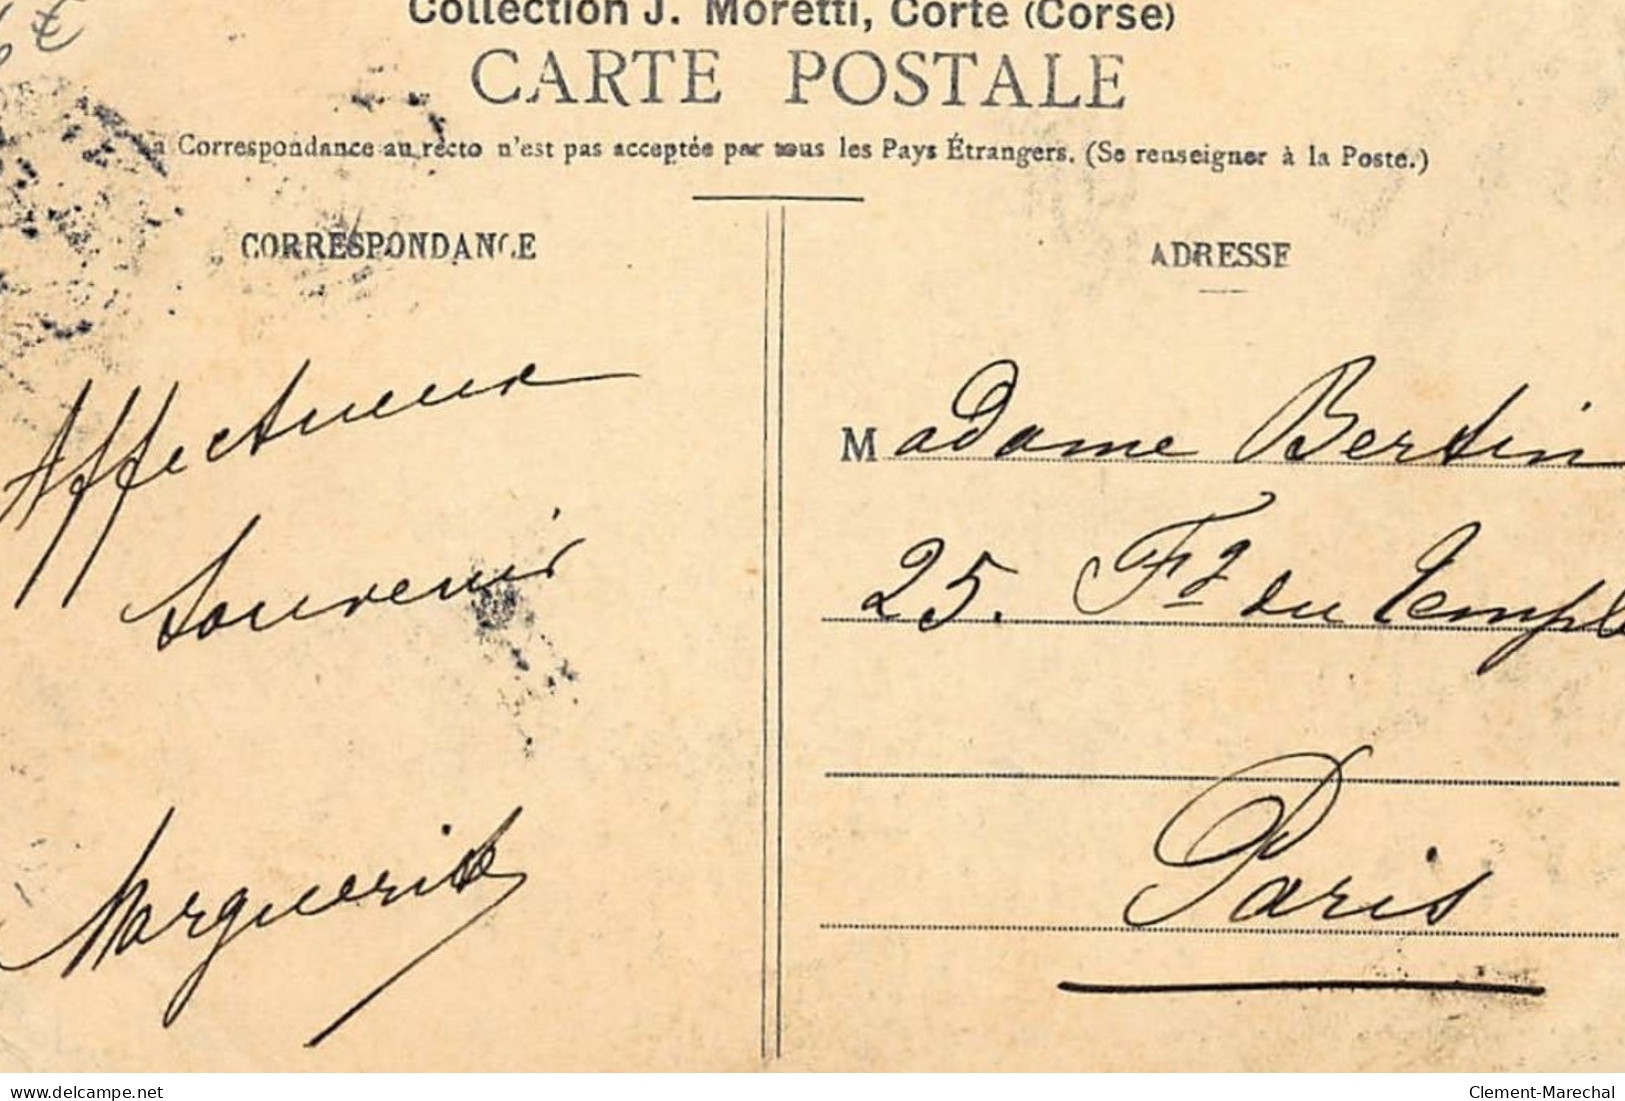 6€
Collection J. Moretti, Corte (Corse)
CARTE POSTALE
a Correspondance au recto n'est pas acceptée par tous les Pays Étrangers. (Se renseigner à la Poste.)
CORRESPONDANCE
ADRESSE
Affectueux
Souvenir
Marguerite
Madame Bertin
25. Fg du Templ
Paris
delcampe.net
Clement-Marechal